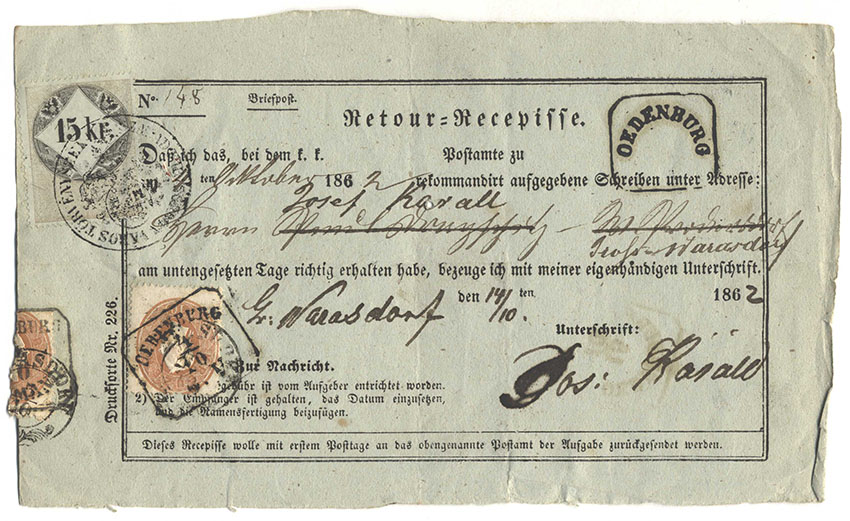 15 kr.
No. 148
Briefpost.
Retour=Recepisse.
OEDENBURG
Daß ich das, bei dem k. k. Postamte zu
ten Oktober 1862 rekommandirt aufgegebene Schreiben unter Adresse:
Josef Karall
Herrn
Gross-Warasdorf
am untengesetzten Tage richtig erhalten habe, bezeuge ich mit meiner eigenhändigen Unterschrift.
Gr. Warasdorf den 14/10. ten 1862
Unterschrift:
Jos: Karall
OEDENBURG
Zur Nachricht.
gebühr ist vom Aufgeber entrichtet worden.
2) Der Empfänger ist gehalten, das Datum einzusetzen,
und die Namensfertigung beizufügen.
Dieses Recepisse wolle mit erstem Posttage an das obengenannte Postamt der Aufgabe zurückgesendet werden.
Drucksorte Nr. 226.